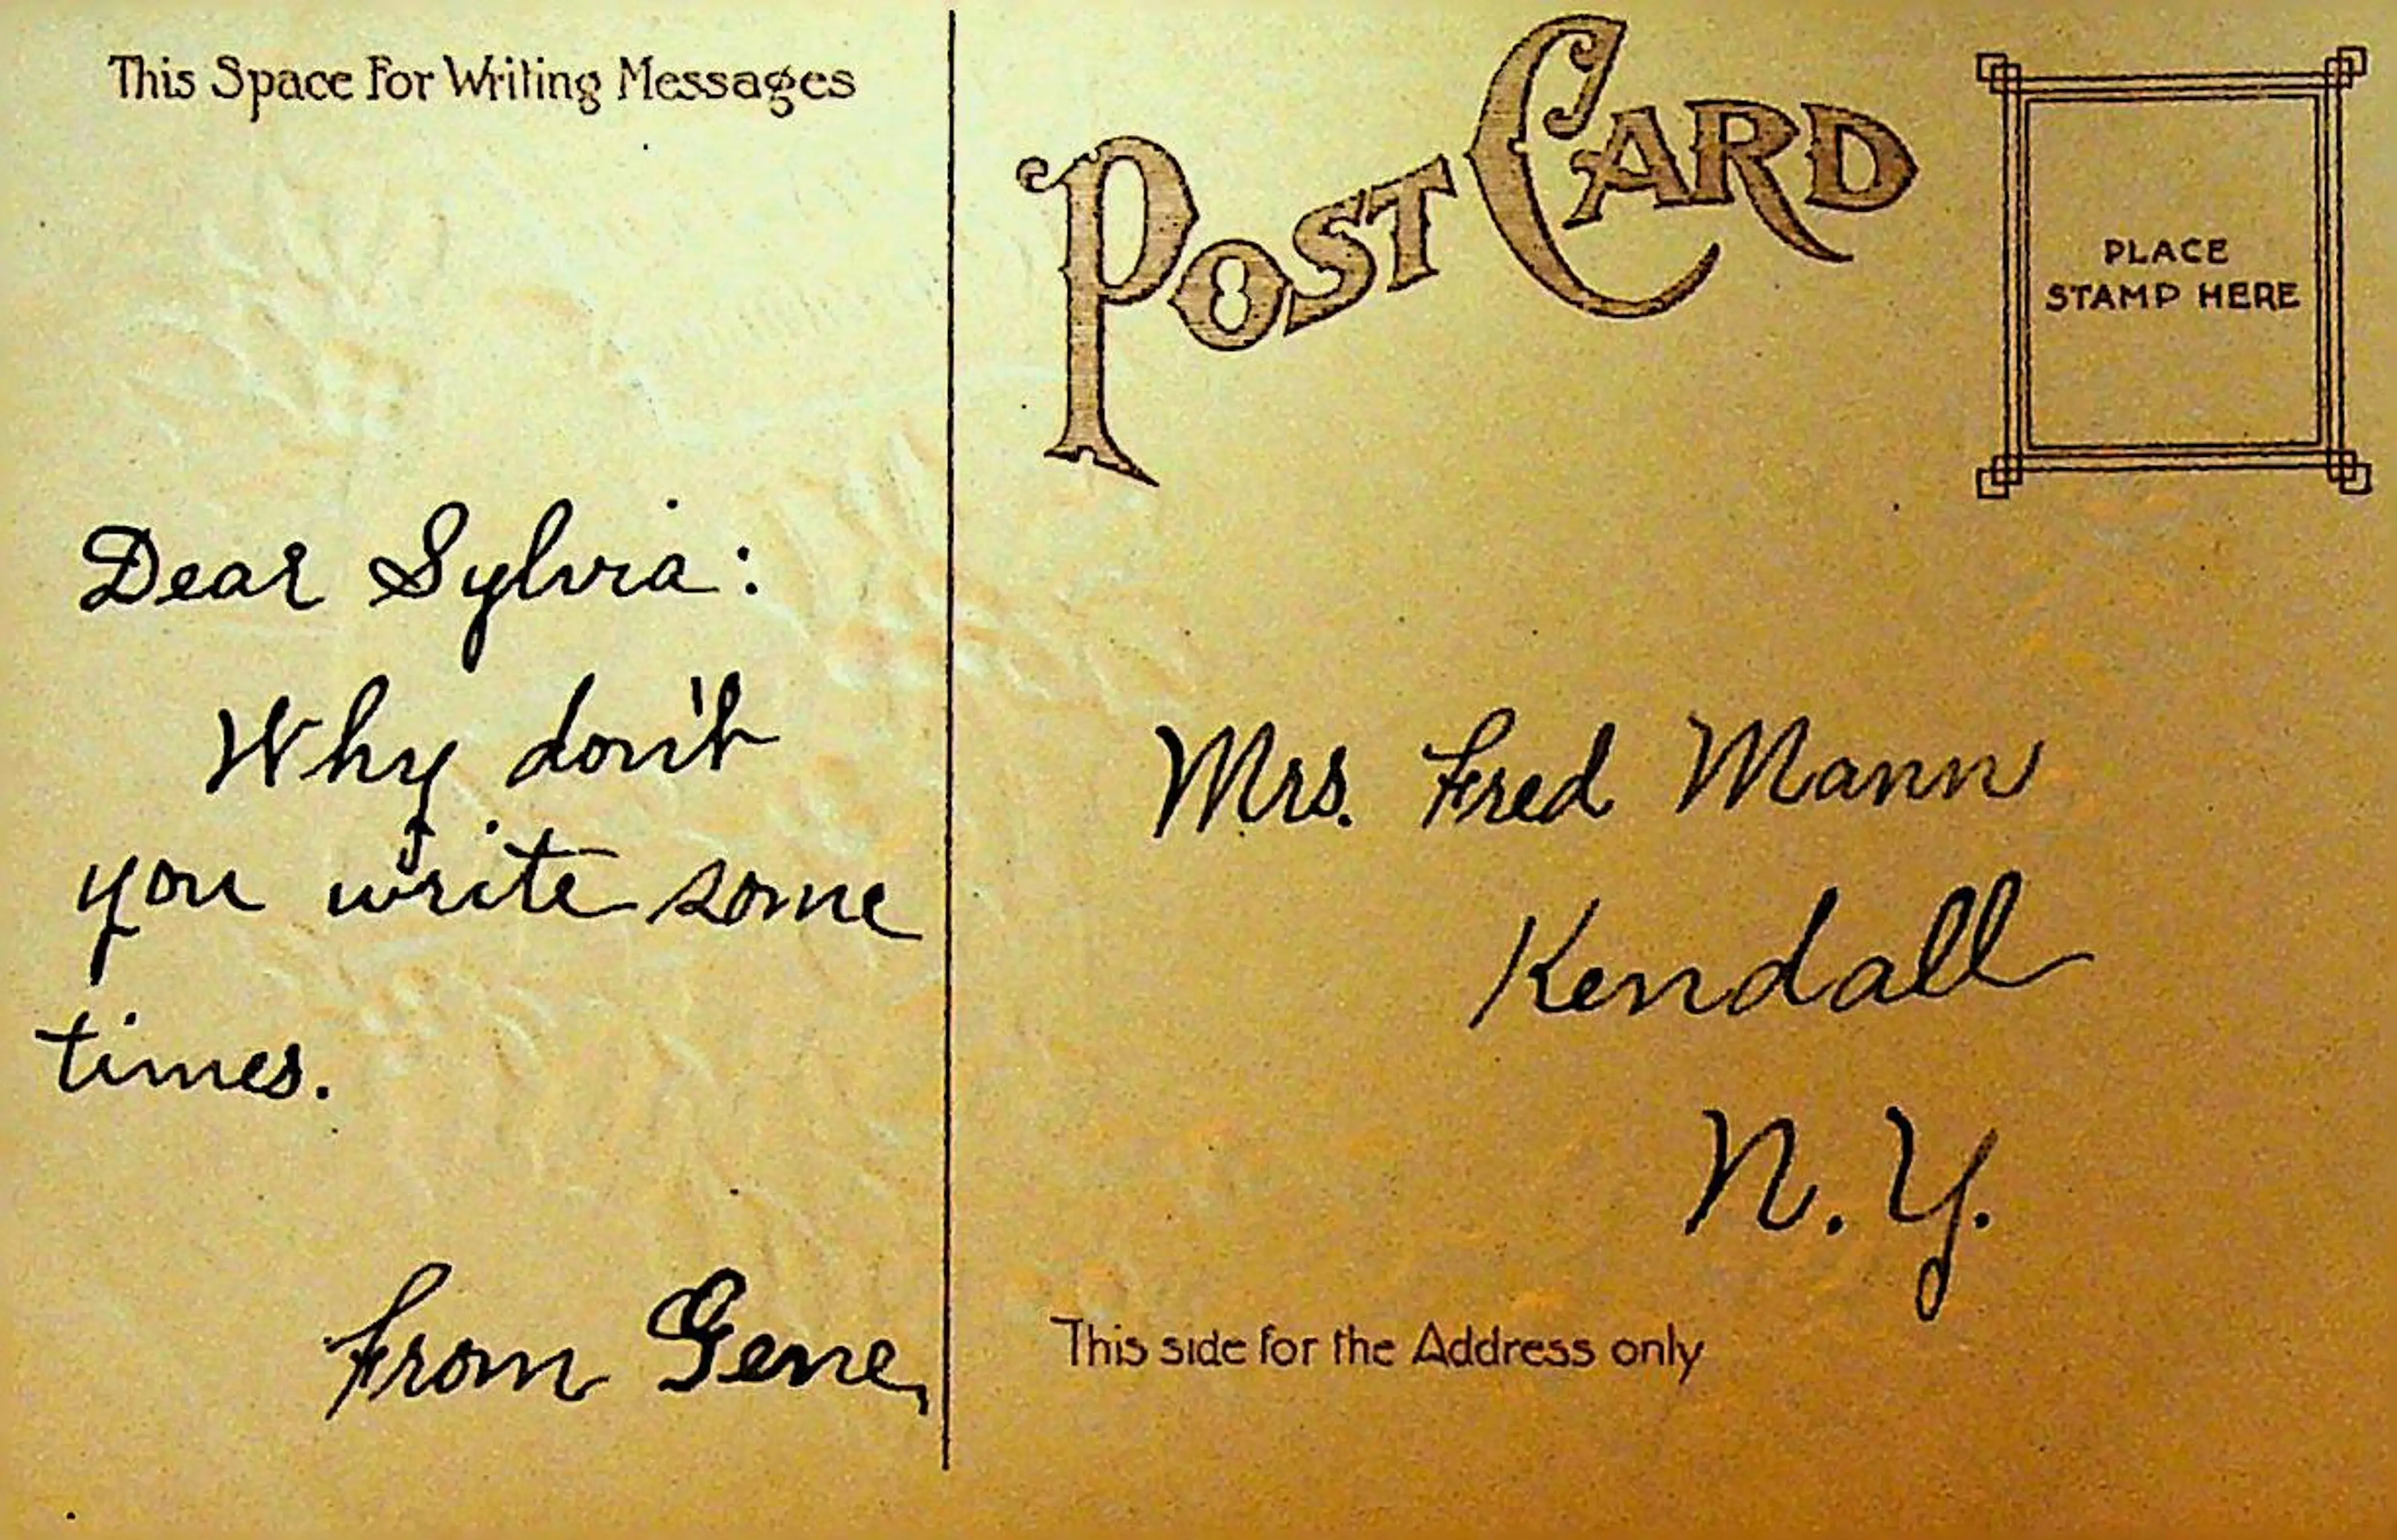 This Space For Writing Messages
Dear Sylvia:
Why don't
you write some
times.
From Gene,
POST CARD
PLACE
STAMP HERE
Mrs. Fred Mann
Kendall
N.Y.
This side for the Address only